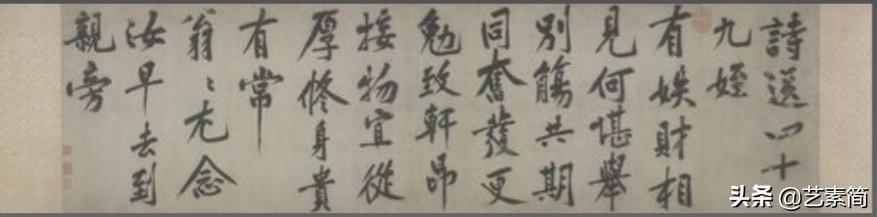 詩送四十
九姪
有娛財相
見何堪舉
別觴共期
同奮發更
勉致軒昂
接物宜從
厚修身貴
有常
翁〻尤念
汝早去到
親旁
头条 @艺素简